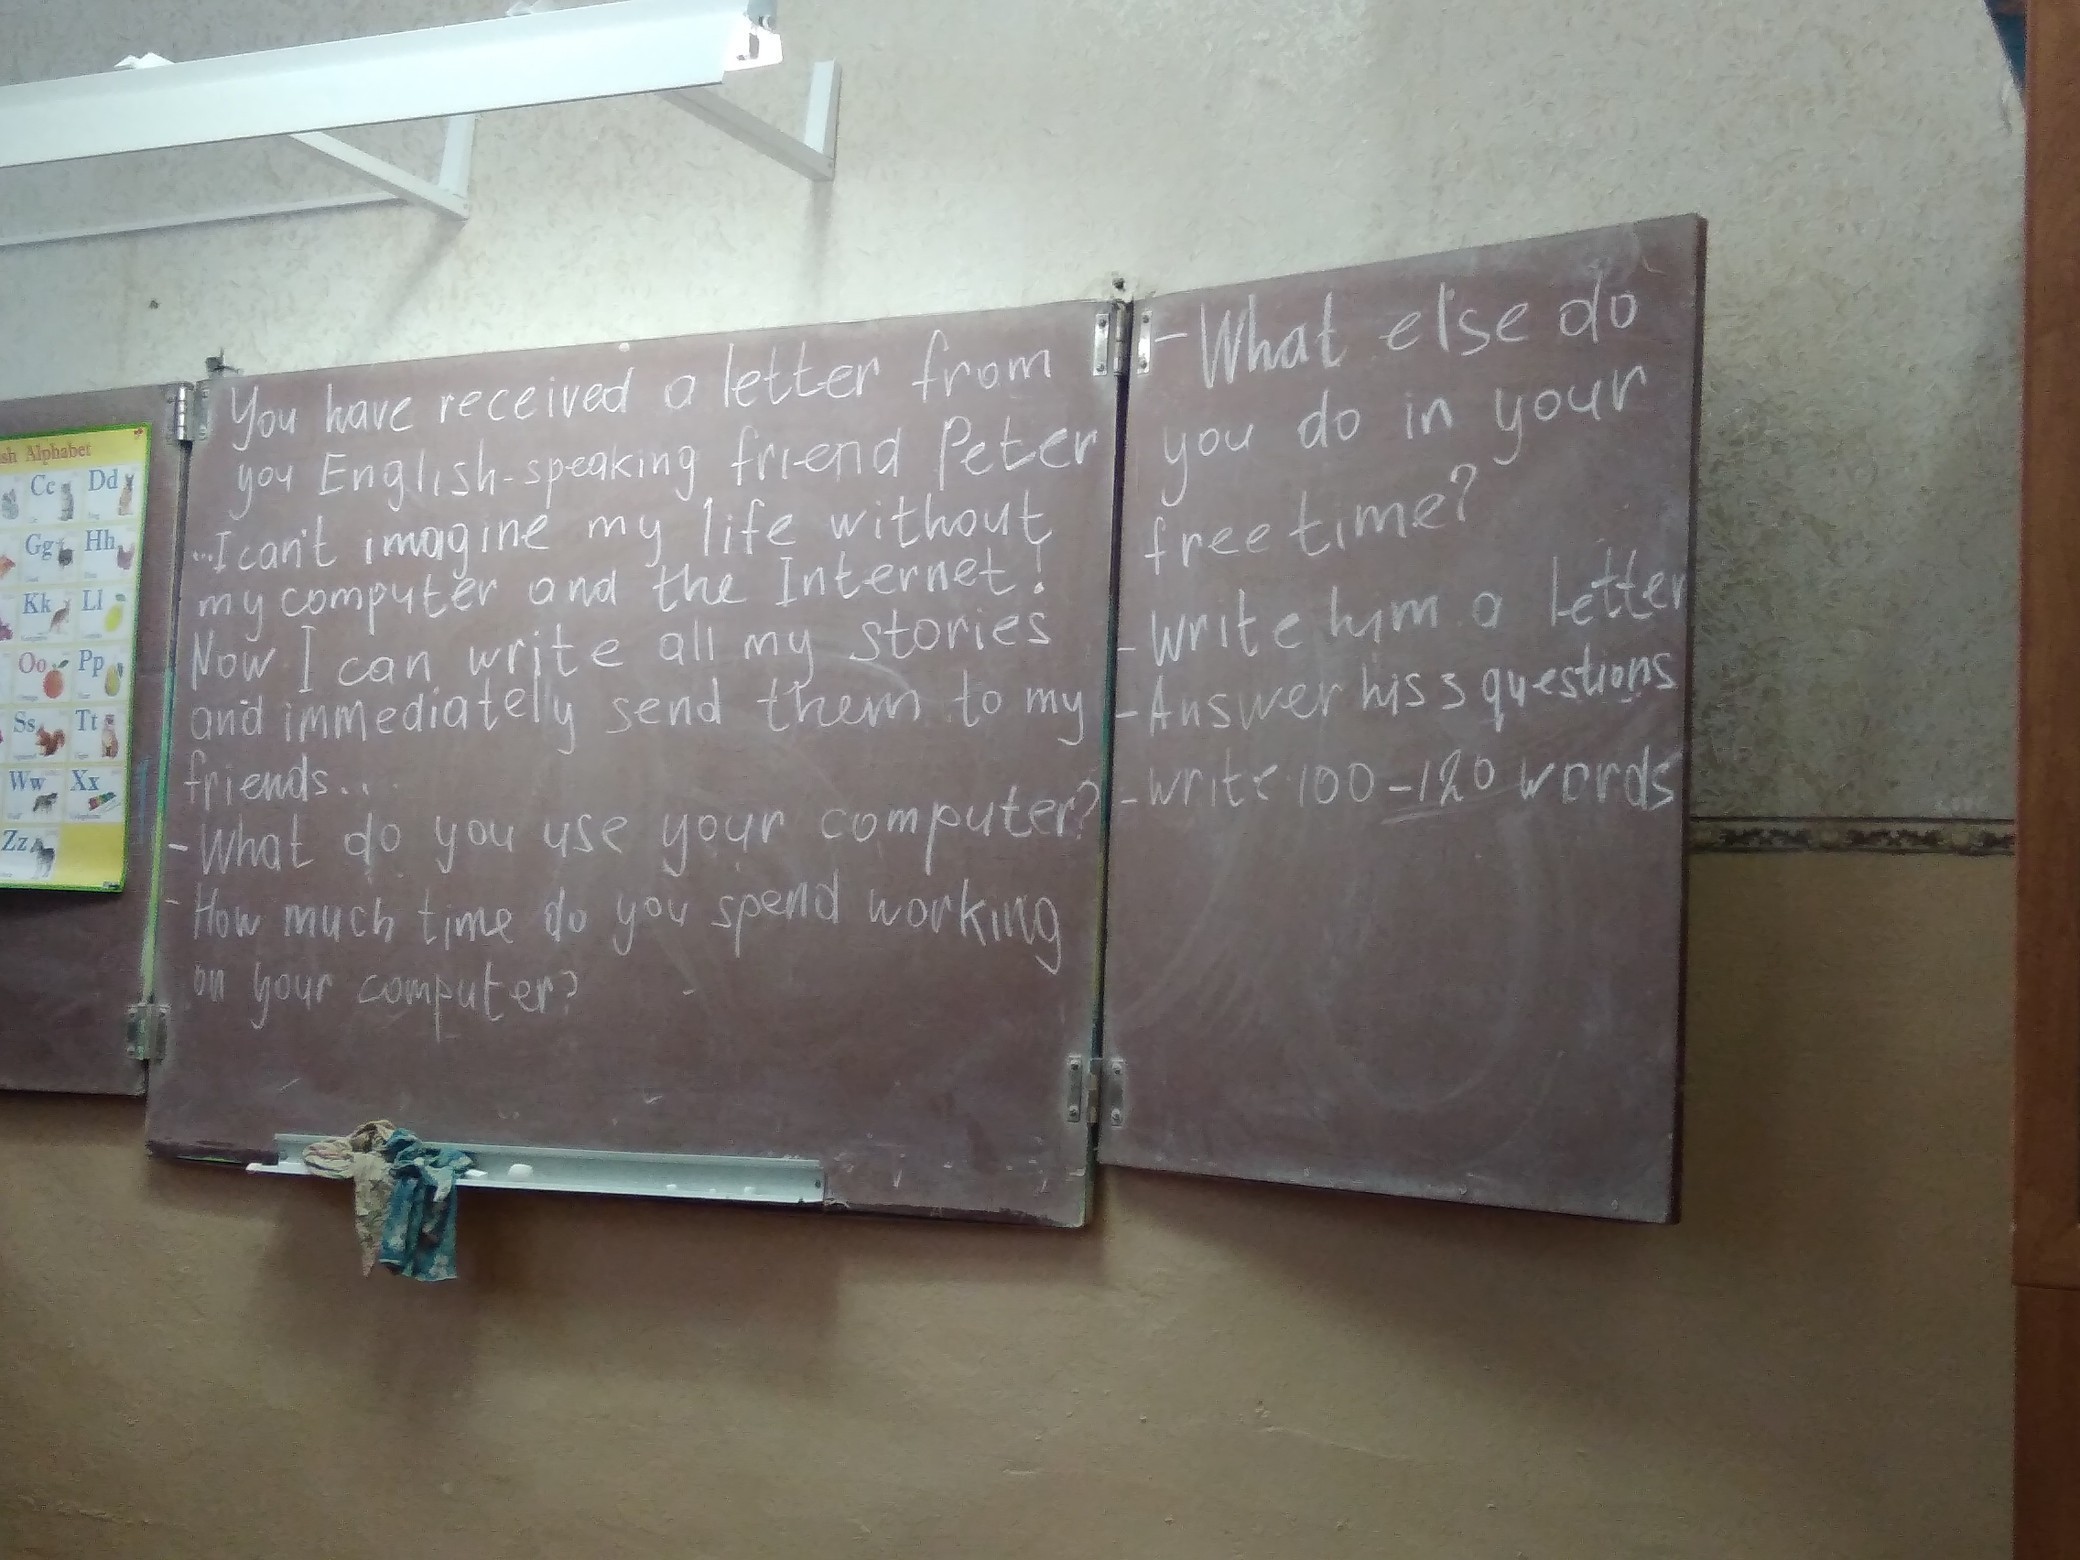 sh Alphabet
Cc Dd
Gg Hh
Kk Ll
Oo Pp
Ss Tt
Ww Xx
Zz
You have received a letter from
you English-speaking friend Peter
...I can't imagine my life without
my computer and the Internet!
Now I can write all my stories
and immediately send them to my
friends...
- What do you use your computer?
- How much time do you spend working
on your computer?
- What else do
you do in your
free time?
- Write him a letter
- Answer his 3 questions
- write 100-120 words